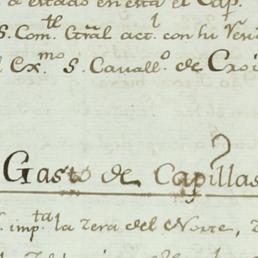 a estado en esta el Cap.l
S. Com.te Grãl act. con su Vesi
l Ex.mo S. Cavall.o de Croi
Gasto de Capillas
imp.ta la Zera del Norte,